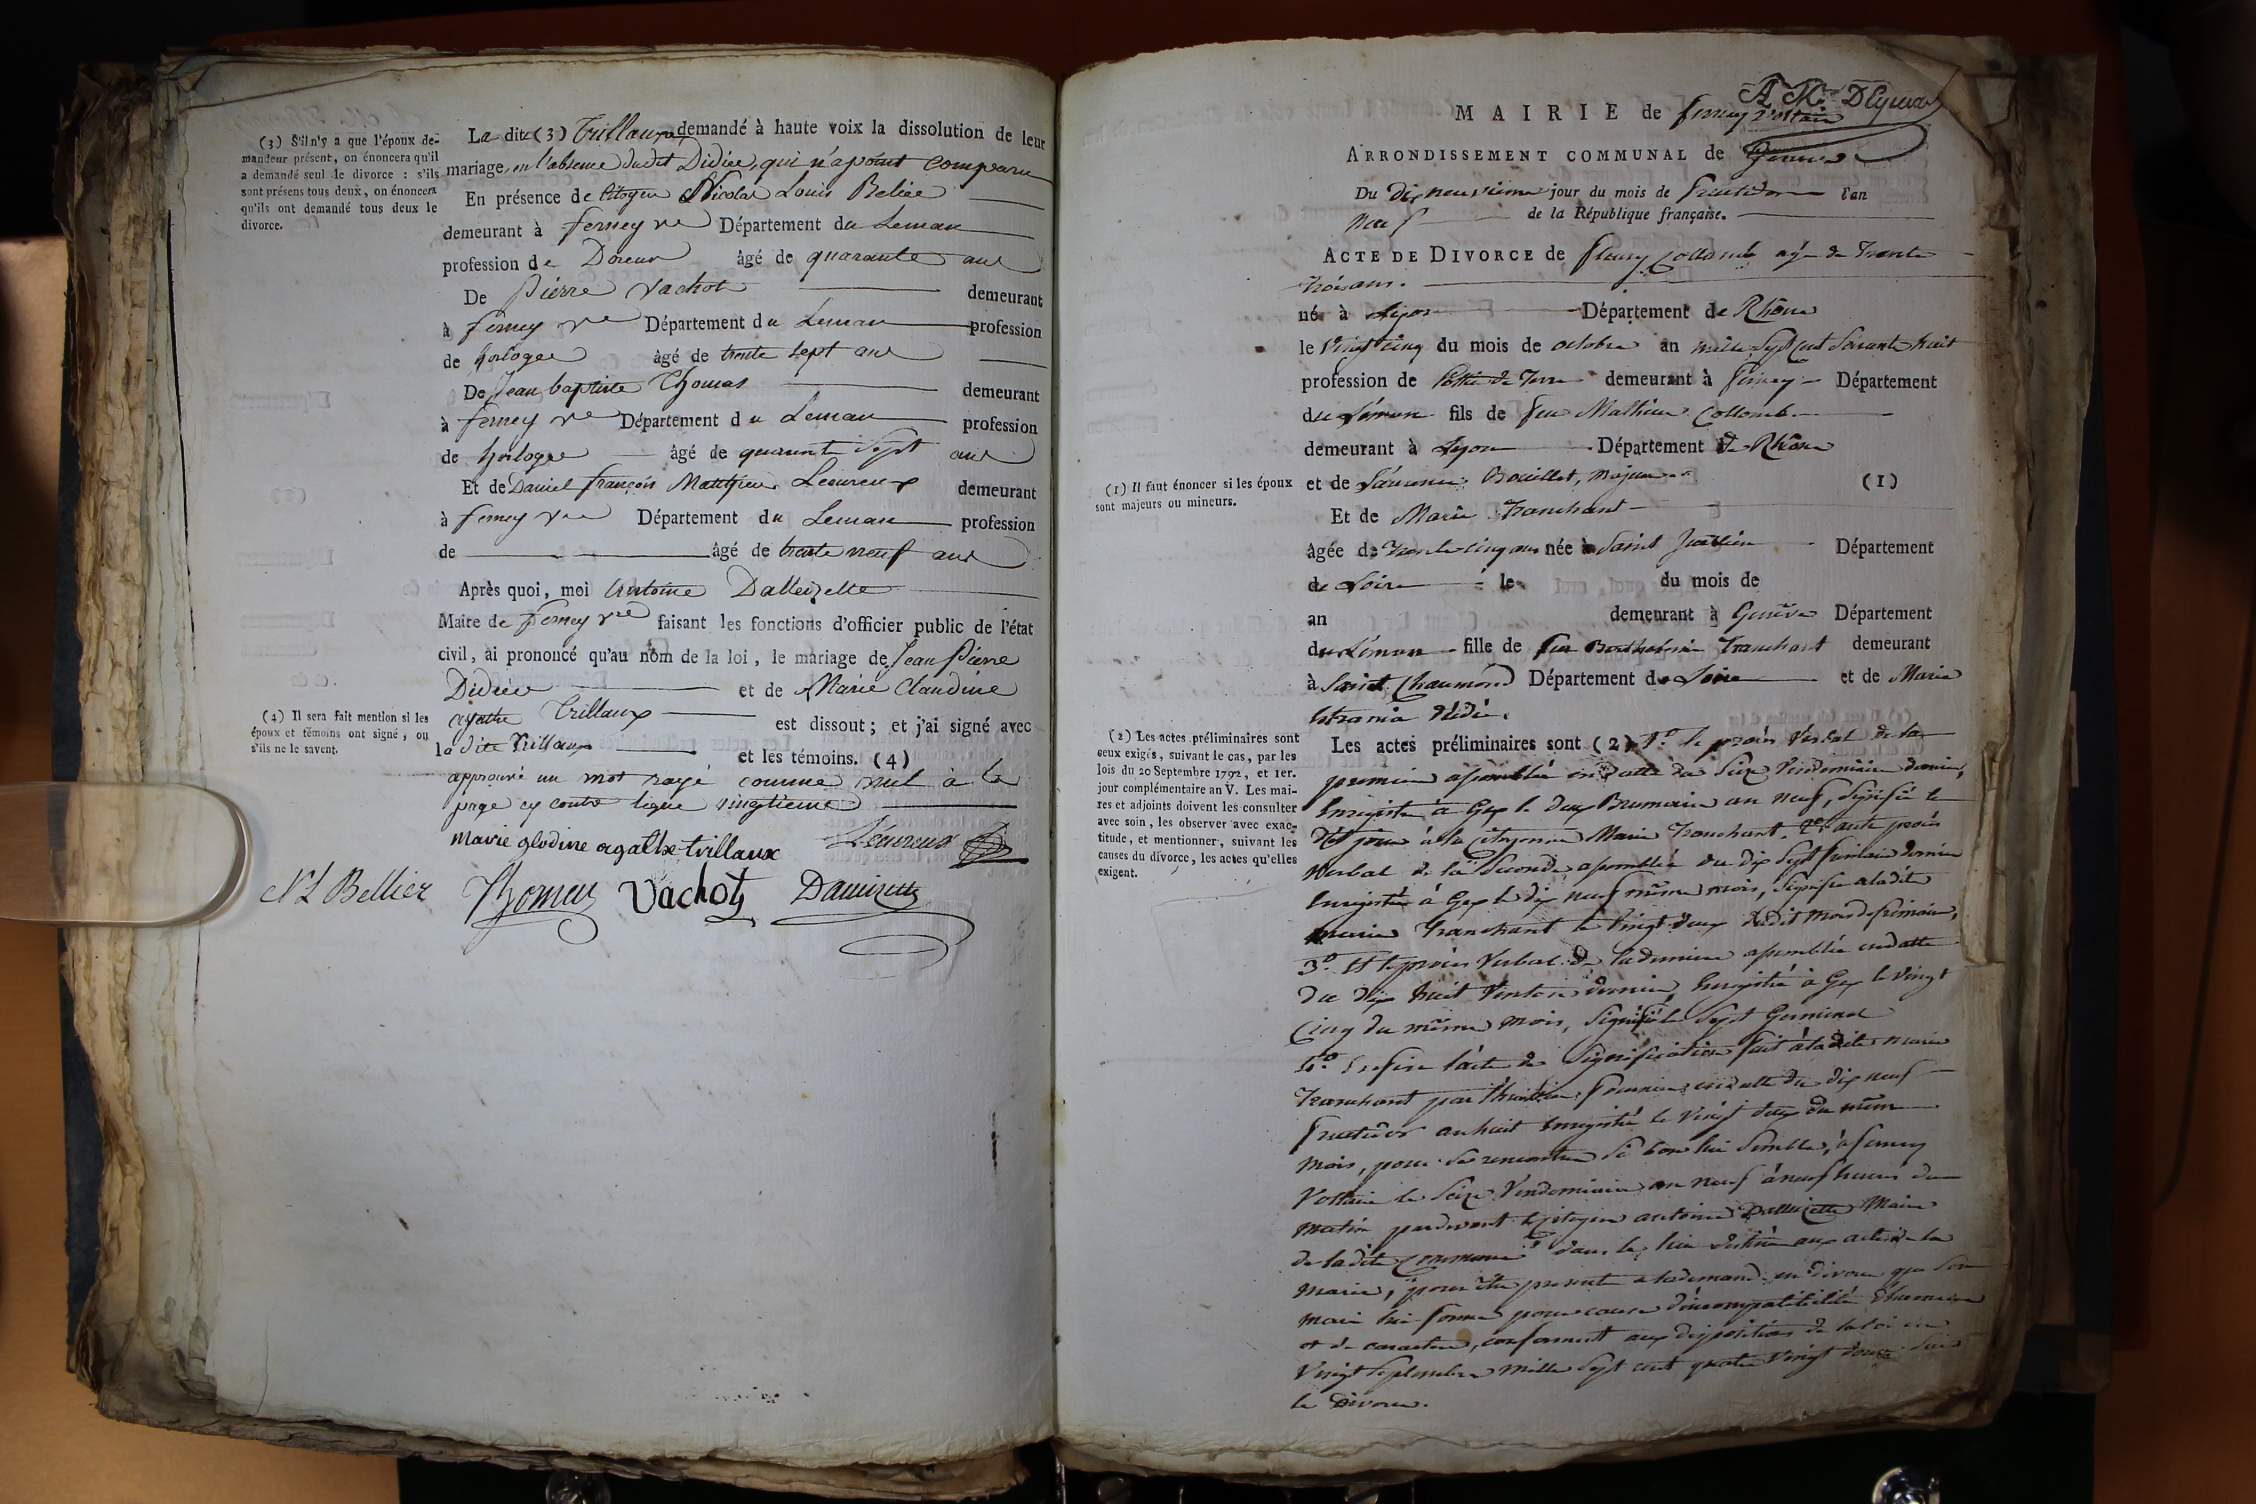 (3) S'il n'y a que l'époux de-
mandeur présent, on énoncera qu'il
a demandé seul le divorce : s'ils
sont présens tous deux, on énoncera
qu'ils ont demandé tous deux le
divorce.
La dite (3) Trillaux a demandé à haute voix la dissolution de leur
mariage, en l'absence dudit Didiée, qui n'a point comparu
En présence de Citoyen Nicolas Louis Belier
demeurant à ferney vre Département du Leman
profession de Doreur âgé de quarante ans
De Pierre Vachot demeurant
à ferney vre Département du Leman profession
de horloger âgé de trente sept ans
De Jean baptiste Thomas demeurant
à ferney vre Département du Leman profession
de horloger âgé de quarante Sept ans
Et de Daniel françois Matthieu Lecureux demeurant
à ferney vre Département du Leman profession
de âgé de trente neuf ans
Après quoi, moi Antoine Dalleizette
Maire de ferney vre faisant les fonctions d'officier public de l'état
civil, ai prononcé qu'au nom de la loi, le mariage de Jean Pierre
Didiée et de Marie Claudine
agathe Trillaux est dissout ; et j'ai signé avec
la dite Trillaux et les témoins. (4)
(4) Il sera fait mention si les
époux et témoins ont signé, ou
s'ils ne le savent.
approuvé un mot rayé comme nul à la
page cy contre ligne vingtieme
marie glodine agathe trillaux Lécureux
N L Bellier Thomas Vachot
A
MAIRIE de ferney Voltaire
ARRONDISSEMENT COMMUNAL de Geneve
Du dix neuvieme jour du mois de fructidor l'an
neuf de la République française.
ACTE DE DIVORCE de fleury Collomb agé de trente
trois ans.
né à Lyon Département de Rhône
le Vingt cinq du mois de octobre an mille Sept Cent Soixante huit
profession de Pottier de Terre demeurant à ferney Département
du Léman fils de feu Mathieu Collomb
demeurant à Lyon Département de Rhône
et de Bouillet, majeur (1)
(1) Il faut énoncer si les époux
sont majeurs ou mineurs.
Et de Marie Tranchant
âgée de Trente cinq ans née à Saint Département
de Loire le du mois de
an demeurant à Genève Département
du Léman fille de feu Tranchant demeurant
à Saint Chaumond Département de Loire et de Marie
(2) Les actes préliminaires sont
ceux exigés, suivant le cas, par les
lois du 20 Septembre 1792, et 1er.
jour complémentaire an V. Les mai-
res et adjoints doivent les consulter
avec soin, les observer avec exac-
titude, et mentionner, suivant les
causes du divorce, les actes qu'elles
exigent.
Les actes préliminaires sont (2) 1º le procés Verbal de la
premiere assemblée en datte du Seize Vendemiaire dernier,
Enregistré à Gex le deux Brumaire an neuf, Signifié le
dit jour à la Citoyenne Marie Tranchant. 2º autre procés
Verbal de la Seconde assemblée du dix Sept frimaire dernier
Enregistré à Gex le dix neuf même mois, Signifié a la dite
marie Tranchant le vingt deux dudit mois de frimaire,
3º Et le procés Verbal de la derniere assemblée en datte
du dix huit Ventose dernier, Enregistré à Gex le Vingt
Cinq du même mois, Signifié le Sept Germinal
4º Enfin l'acte de Signification fait à la dite marie
Tranchant par l'huissier fournier en datte du dix neuf
fructidor an huit Enregistré le Vingt deux du même
mois, pour Se rencontrer Si bon lui Semble, à ferney
Voltaire le Seize Vendemiaire an neuf à neuf heures du
matin pardevant le Citoyen antoine Dalleizette Maire
de la dite Commune dans le lieu destiné aux actes de la
Mairie, pour être presente a la demande en divorce que Son
mari lui forme pour cause d'incompatibilité d'humeur
et de caractere, conforment aux dispositions de la loi du
Vingt Septembre mille Sept cent quatre Vingt douze Sur
le Divorce.